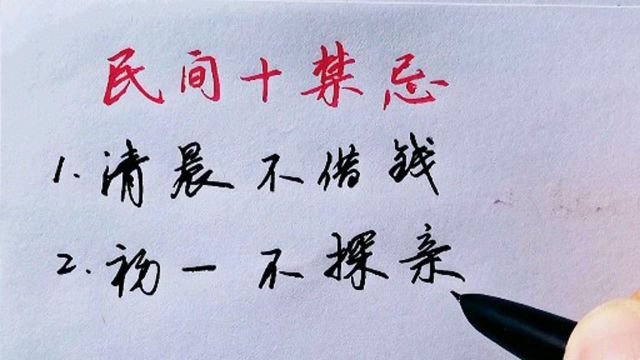 民间十禁忌
1. 清晨不借钱
2. 初一不探亲